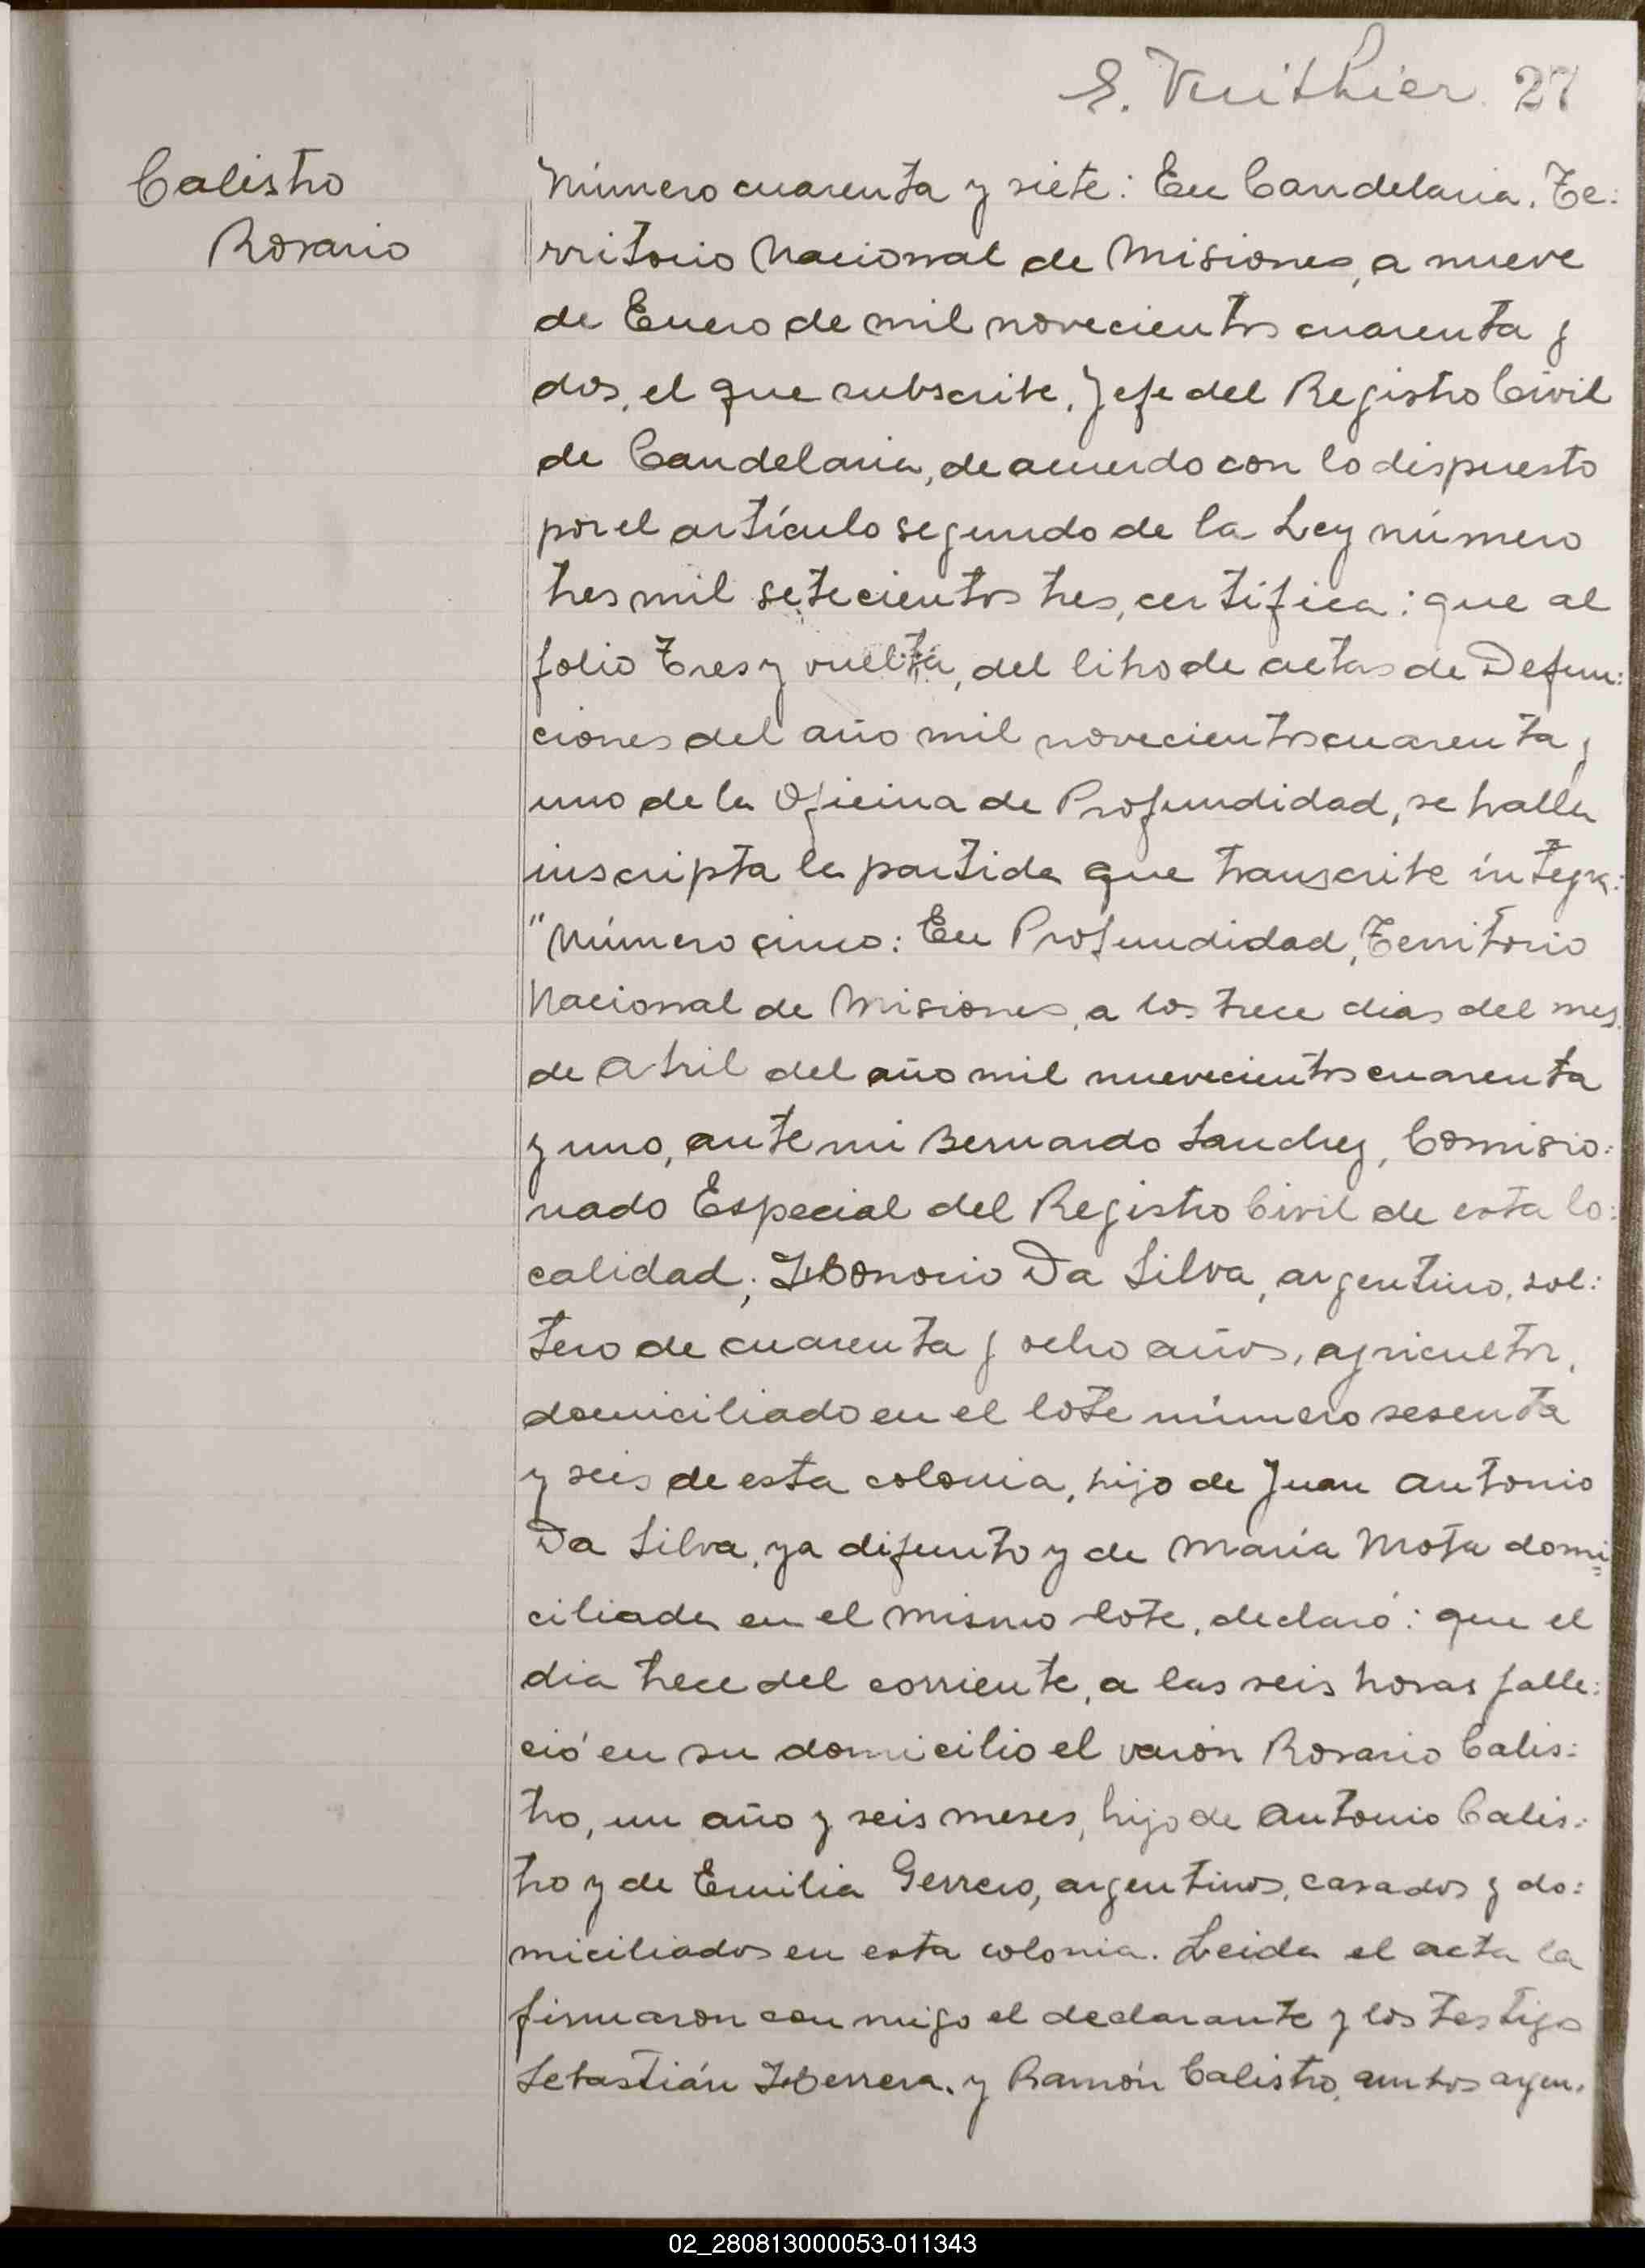 E. Vuithier. 27
Calistro
Rosario
Número cuarenta y siete: En Candelaria, Te:
rritorio Nacional de Misiones, a nueve
de Enero de mil novecientos cuarenta y
dos, el que subscribe, Jefe del Registro Civil
de Candelaria, de acuerdo con lo dispuesto
por el artículo segundo de la Ley número
tres mil setecientos tres, certifica: que al
folio Tres y vuelta, del libro de actas de Defun:
ciones del año mil novecientos cuarenta y
uno de la Oficina de Profundidad, se halla
inscripta la partida que transcribe íntegra:
"Número cinco: En Profundidad, Territorio
Nacional de Misiones, a los trece dias del mes
de Abril del año mil nuevecientos cuarenta
y uno, ante mi Bernardo Sanchez, Comisio:
nado Especial del Registro Civil de esta lo:
calidad; Honorio Da Silva, argentino, sol:
tero de cuarenta y ocho años, agricultor,
domiciliado en el lote número sesenta
y seis de esta colonia, hijo de Juan Antonio
Da Silva, ya difunto y de María Mota domi=
ciliada en el mismo lote, declaró: que el
dia trece del corriente, a las seis horas falle:
ció en su domicilio el varón Rosario Calis:
tro, un año y seis meses, hijo de Antonio Calis:
tro y de Emilia Gerrero, argentinos, casados y do:
miciliados en esta colonia. Leida el acta la
firmaron conmigo el declarante y los testigos
Sebastián Herrera, y Ramón Calistro, ambos argen.
02_280813000053-011343